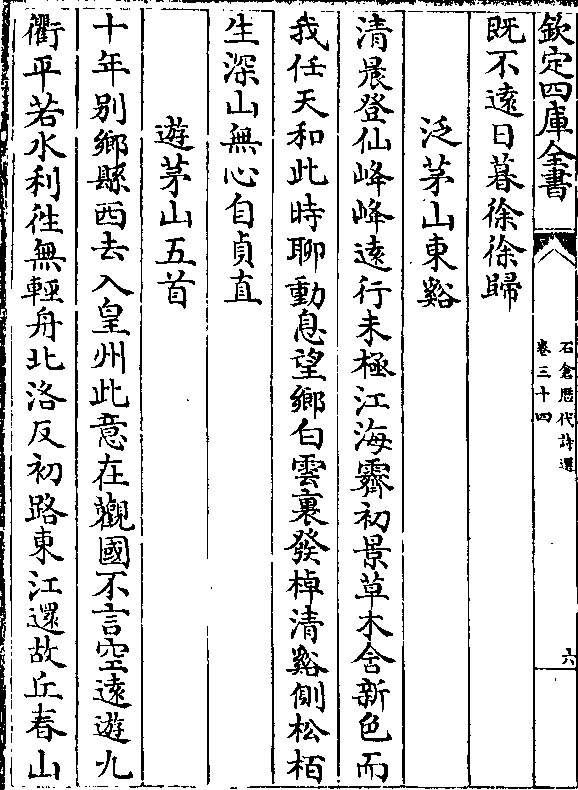 欽定四庫全書
石倉歷代詩選
卷三十四
六
既不遠日暮徐徐歸
泛茅山東谿
清晨登仙峰峰遠行未極江海霽初景草木含新色而
我任天和此時聊動息望鄉白雲裏發棹清谿側松柏
生深山無心自貞直
遊茅山五首
十年别鄉縣西去入皇州此意在觀國不言空遠遊九
衢平若水利徃無輕舟北洛反初路東江還故丘春山